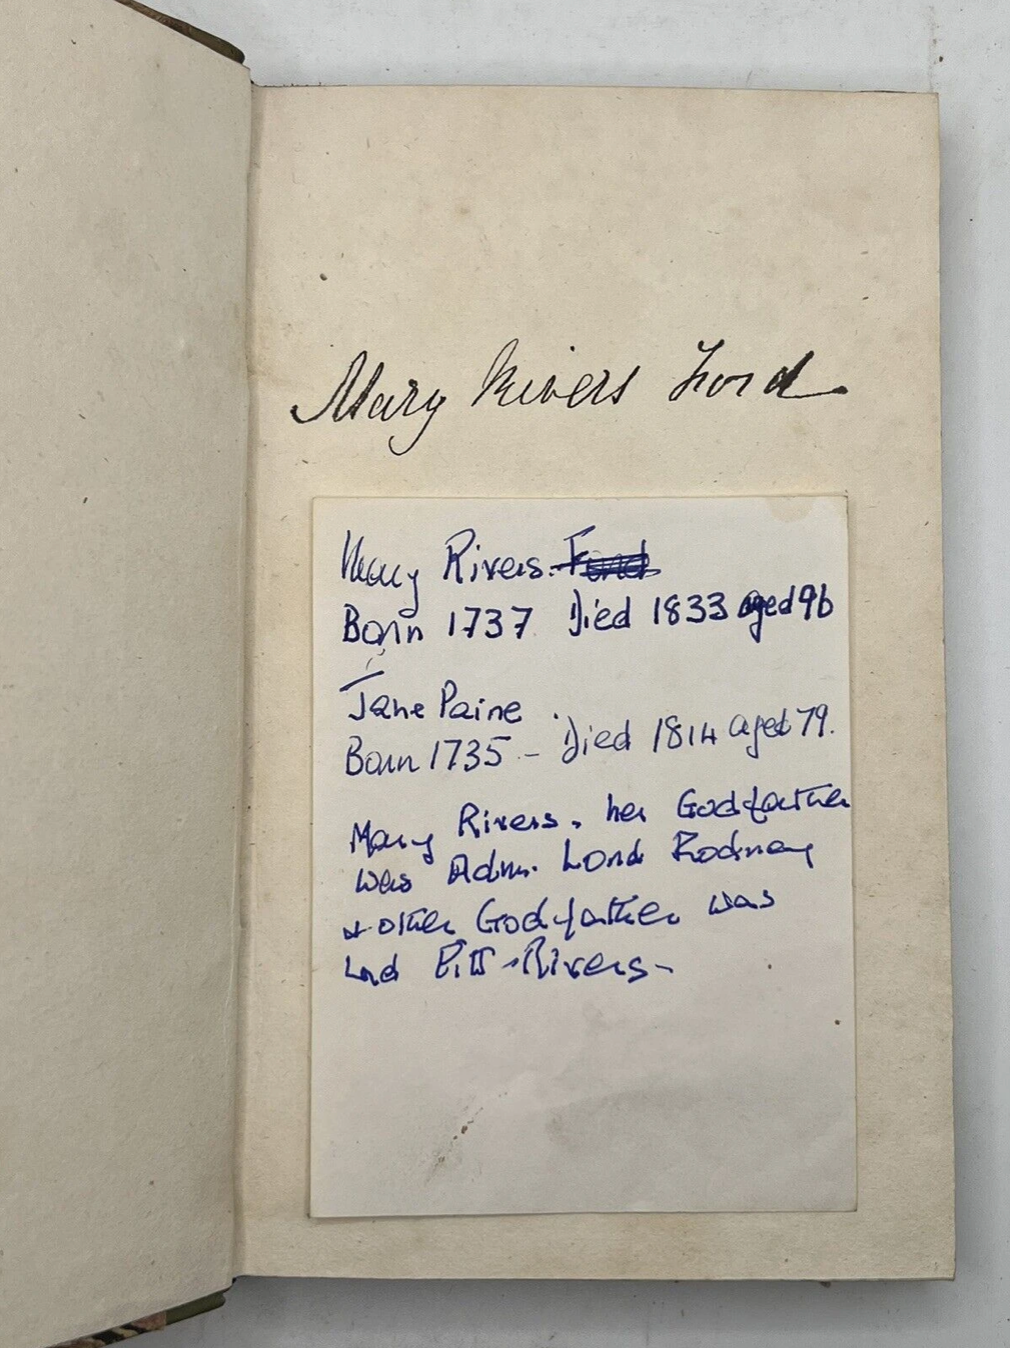 Mary Rivers Ford
Mary Rivers. Ford
Born 1737 Died 1833 aged 96
Jane Paine
Born 1735 - Died 1814 aged 79.
Mary Rivers. her Godfather
was Adm. Lord Rodney
& other Godfather was
Lord Pitt-Rivers-